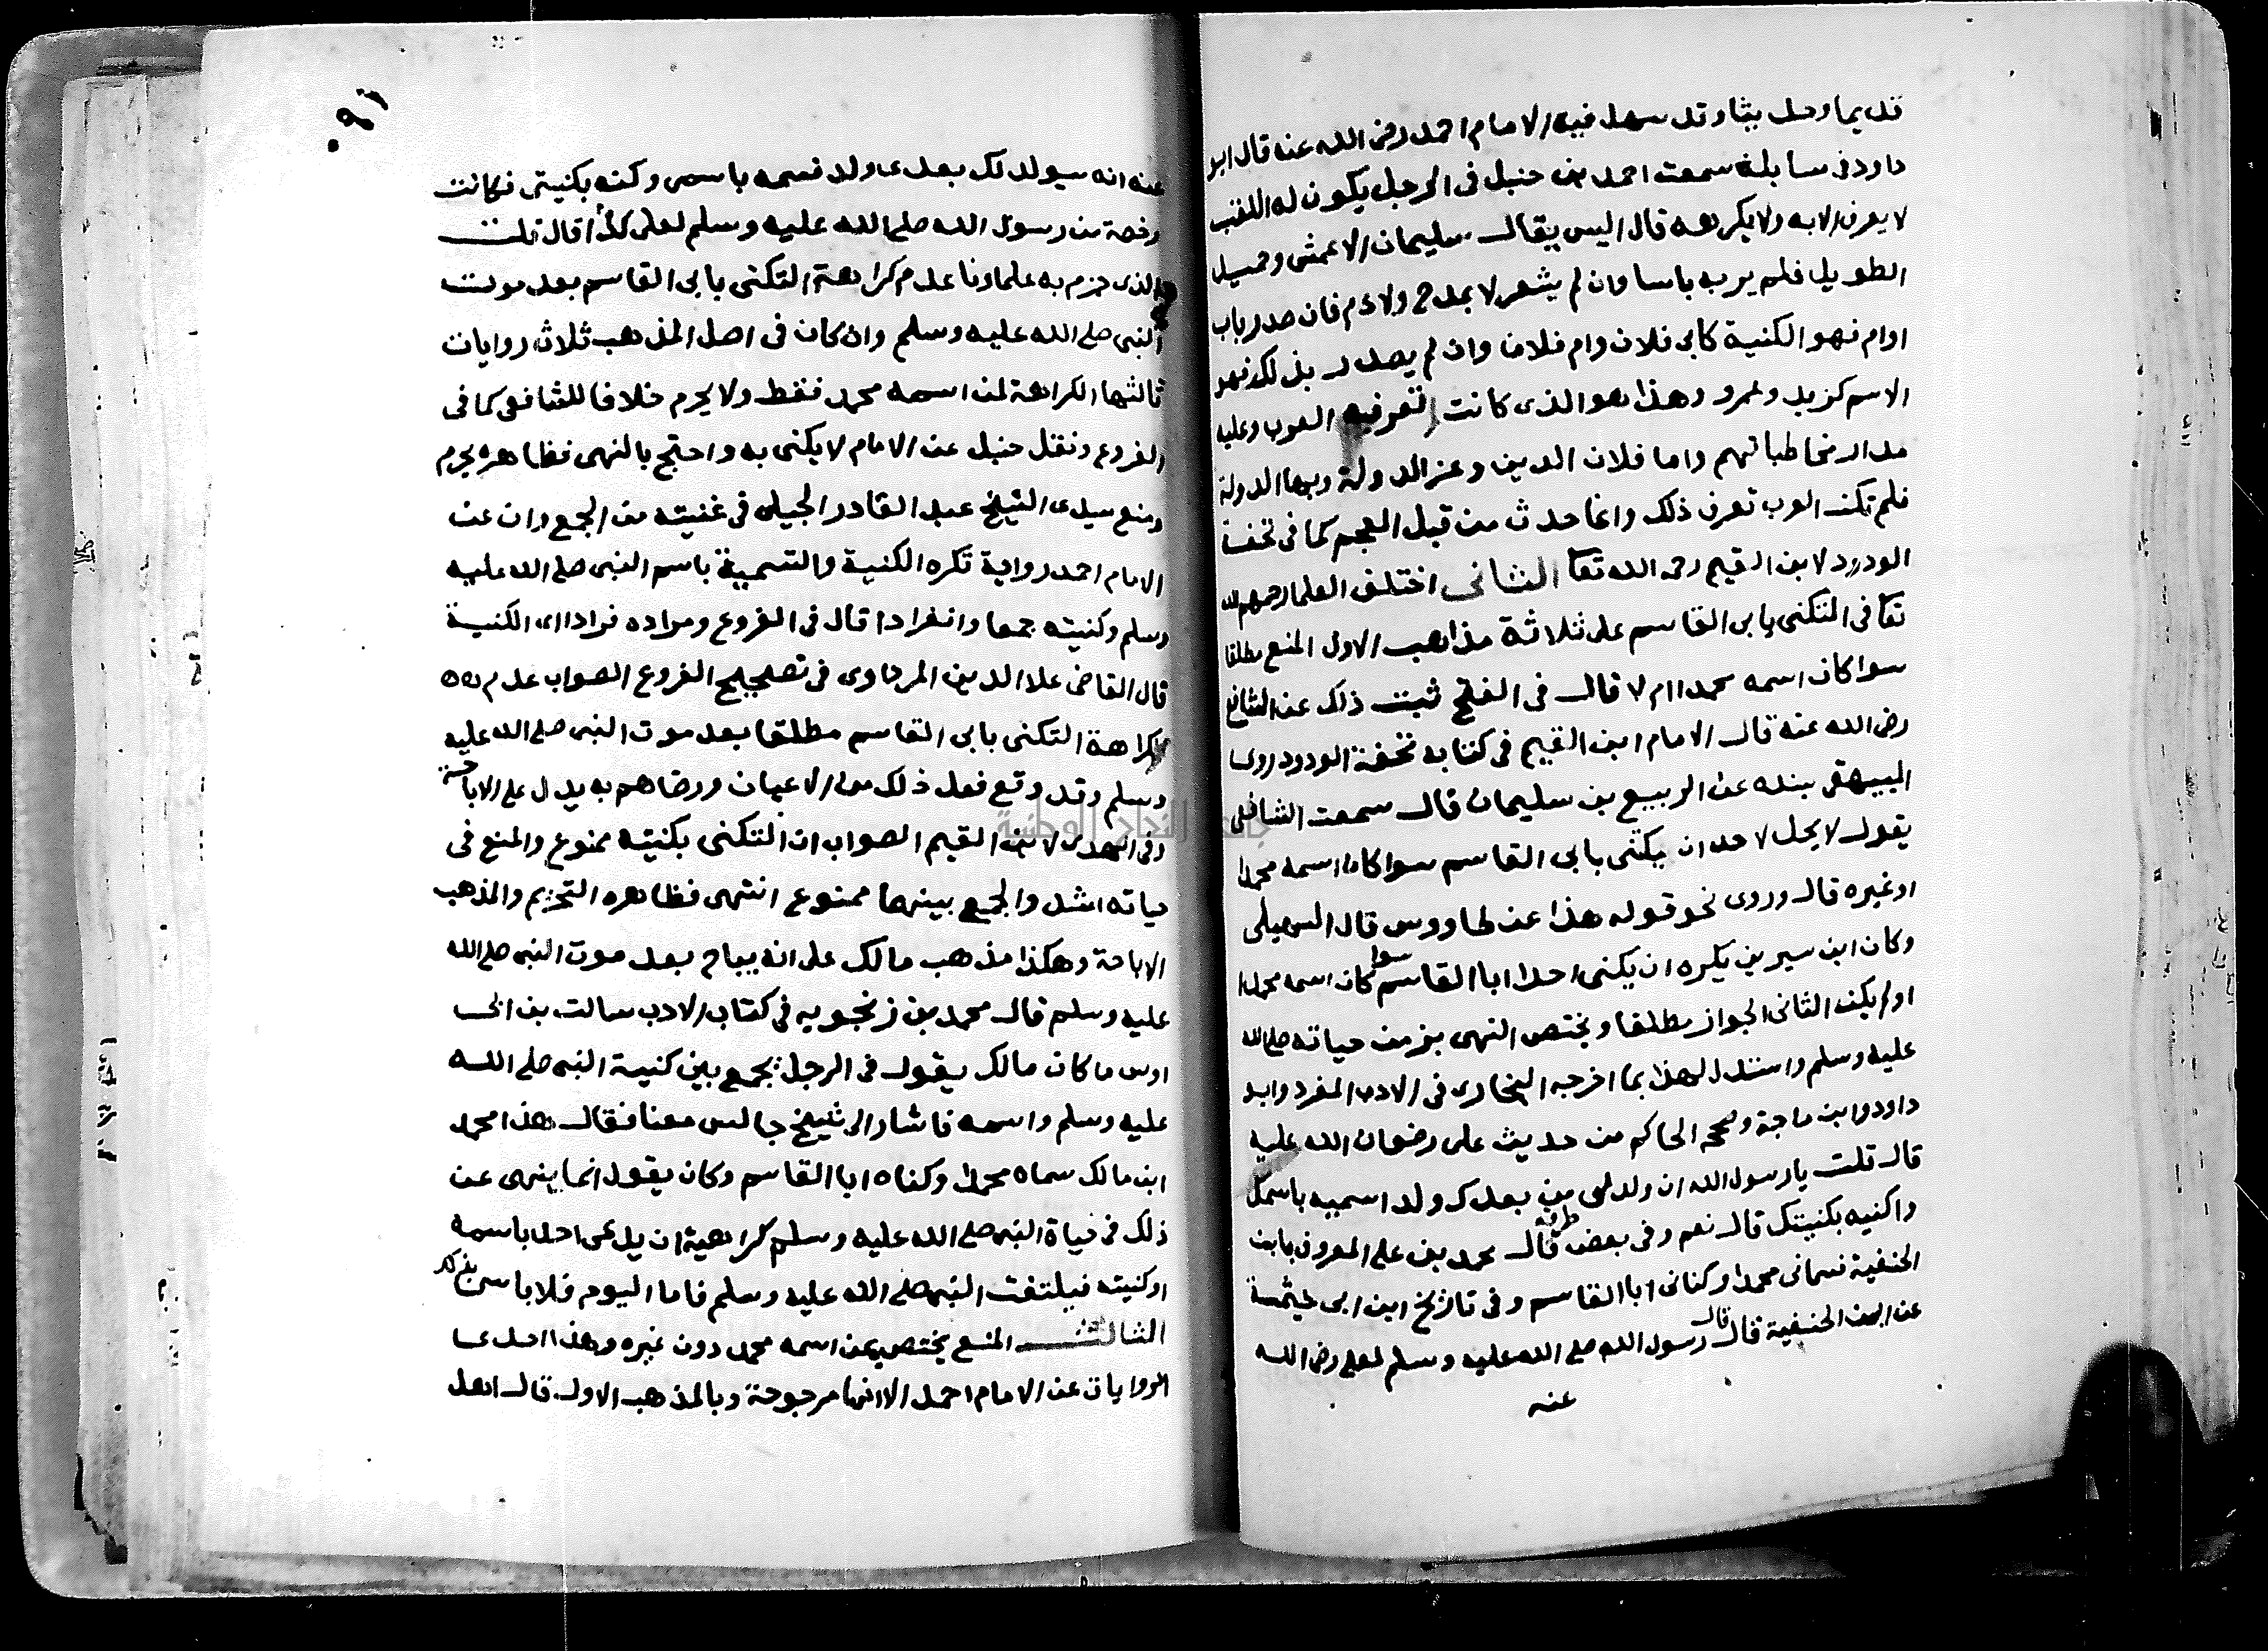 قديما وحديثا وقد سهل فيه الامام احمد رضي الله عنه قال ابو
داود في سايله سمعت احمد بن حنبل في الرجل يكون له اللقب
لا يعرف الا به ولا يكرهه قال اليس يقال سليمان الاعمش وحميد
الطويل فلم ير به باسا وان لم يشعر لا بمدح ولا ذم فان صدر باب
او ام فهو الكنية كابي فلان وام فلان وان لم يصدر بذلك فهو
الاسم كزيد وعمرو وهذا هو الذي كانت تعرفه العرب وعليه
مدار مخاطباتهم واما فلان الدين وعز الدولة وبها الدولة
فلم تكن العرب تعرف ذلك وانما حدث من قبل العجم كما في تحفة
الودود لابن القيم رحمه الله تعا الثاني اختلف العلما رحمهم الله
تعا في التكني بابي القاسم على ثلاثة مذاهب الاول المنع مطلقا
سوا كان اسمه محمدا ام لا قال في الفتح ثبت ذلك عن الشافع
رضي الله عنه قال الامام ابن القيم في كتابه تحفة الودود روى
البيهقي بنده عن الربيع بن سليمان قال سمعت الشافعي
يقول لا يحل لاحد ان يكتنى بابي القاسم سوا كان اسمه محمدا
او غيره قال وروى نحو قوله هذا عن طاووس قال السهيلي
وكان ابن سيرين يكره ان يكنى احدا ابا القاسم سوا كان اسمه محمدا
او لم يكن الثاني الجواز مطلقا ويختص النهي بزمن حياته صلى الله
عليه وسلم واستدل لهذا بما اخرجه البخاري في الادب المفرد وابو
داود وابن ماجة وصححه الحاكم من حديث علي رضوان الله عليه
قال قلت يا رسول الله ان ولد لي من بعدك ولد اسميه باسمك
واكنيه بكنيتك قال نعم وفي بعض طرقه قال محمد بن علي المعروف بابن
الحنفية فسماني محمدا وكناني ابا القاسم وفي تاريخ ابن ابي خيثمة
عن ابن الحنفية قال قال رسول الله صلى الله عليه وسلم لعلي رضي الله
عنه
٠٩٢
عنه انه سيولد لك بعدي ولد فسمه باسمي وكنه بكنيتي فكانت
رخصة من رسول الله صلى الله عليه وسلم لعلي كذا قال قلت
والذي جزم به علماونا عدم كراهة التكني بابي القاسم بعد موت
النبي صلى الله عليه وسلم وان كان في اصل المذهب ثلاث روايات
ثالثها الكراهة لمن اسمه محمد فقط ولا يحرم خلافا للشافعي كما في
الفروع ونقل حنبل عن الامام لا يكنى به واحتج بالنهي فظاهره يحرم
ومنع سيدي الشيخ عبد القادر الجيلي في غنيته من الجمع وان عن
الامام احمد رواية تكره الكنية والتسمية باسم النبي صلى الله عليه
وسلم وكنيته جمعا وانفرادا قال في الفروع ومراده فرادا اي الكنية
قال القاضي علا الدين المرداوي في تصحيح الفروع الصواب عدم
كراهة التكني بابي القاسم مطلقا بعد موت النبي صلى الله عليه
وسلم وقد وقع فعل ذلك من الاعيان ورضاهم به يدل على الاباحة
وفي الهدي لابن القيم الصواب ان التكني بكنيته ممنوع والمنع في
حياته اشد والجمع بينهما ممنوع انتهى فظاهره التحريم والمذهب
الاباحة وهكذا مذهب مالك على انه يباح بعد موت النبي صلى الله
عليه وسلم قال محمد بن زنجويه في كتاب الادب سالت بن ابي
اوس ما كان مالك يقول في الرجل يجمع بين كنية النبي صلى الله
عليه وسلم واسمه فاشار الى شيخ جالس معنا فقال هذا محمد
ابن مالك سماه محمدا وكناه ابا القاسم وكان يقول انما ينهى عن
ذلك في حياة النبي صلى الله عليه وسلم كراهية ان يدعى احد باسمه
او كنيته فيلتفت النبي صلى الله عليه وسلم فاما اليوم فلا باس بذلك
الثالث المنع يختص بمن اسمه محمد دون غيره وهذا احدى
الروايات عن الامام احمد الا انها مرجوحة وبالمذهب الاول قال اهل
جامعة النجاح الوطنية